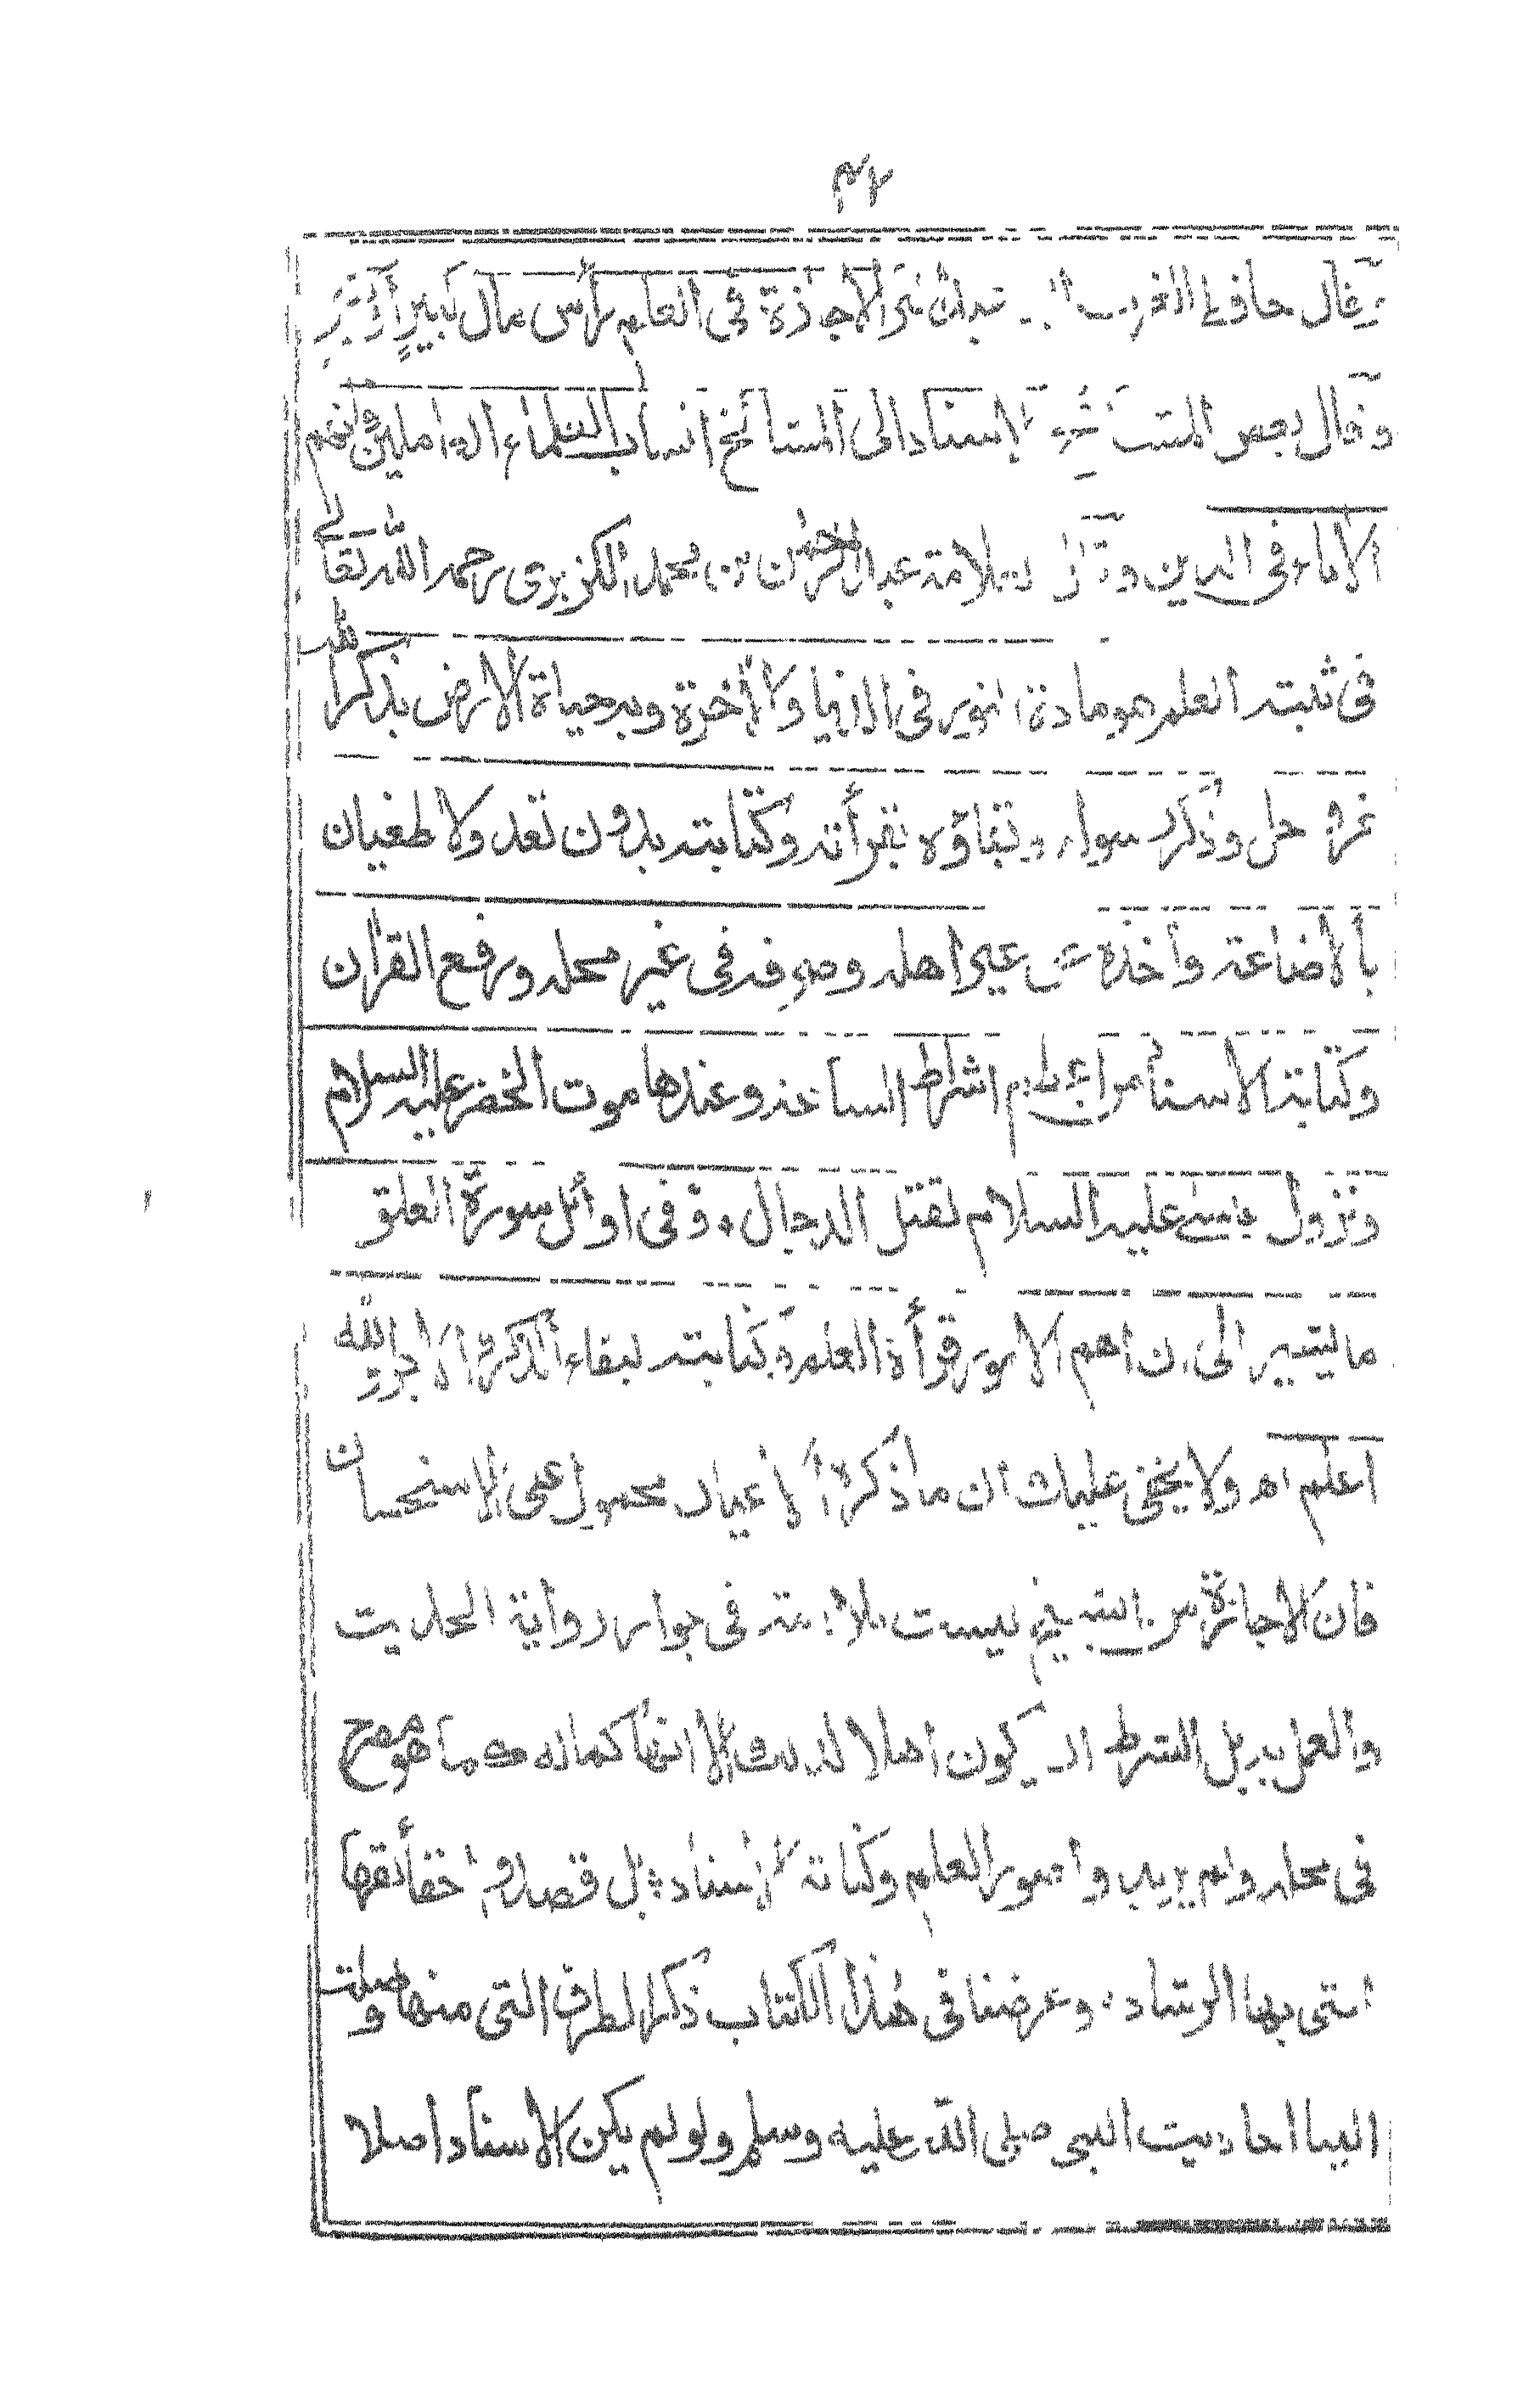 وقال حافظ المغرب ابن عبد البر الاجازة فى العلم رأس مال كبير أو كثير
وقال بعض المشايخ الاسناد الى المشائخ انساب العلماء العاملين وانهم
الاباء فى الدين وقال العلامة عبد الرحمن بن محمد الكزبرى رحمه الله تعالى
فى ثبته العلم هو مادة الخير فى الدنيا والأخرة وبه حياة الارض بذكر الله
عز وجل وذكر رسوله وبقاؤه بقرأته وكتابته بدون تعد ولا طغيان
بالاضاعة واخذه عن غير اهله وصرفه فى غير محله ورفع القرأن
وكتابة الاسناد من اعظم اشراط الساعة وعندها موت الخضر عليه السلام
ونزول عيسى عليه السلام لقتل الدجال، وفى اوائل سورة العلق
ما يشير الى ان اهم الامور قرأة العلم وكتابته لبقاء الذكر والاجر والله
اعلم اه ولا يخفى عليك ان ما ذكره الاعيان محمول على الاستحسان
فان الاجازة من الشيخ ليست بلازمة فى جواز رواية الحديث
والعمل به بل الشرط ان يكون اهلا لذلك الا انها كماله كما هو مصرح
فى محله ولم يريدوا بصور العلم وكتابة الاسناد بل قصدوا حقائقها
التى بها الرشاد، وغرضنا فى هذا الكتاب ذكر الطرق التى منها وصلت
الينا احاديث النبى صلى الله عليه وسلم ولو لم يكن الاسناد اصلا